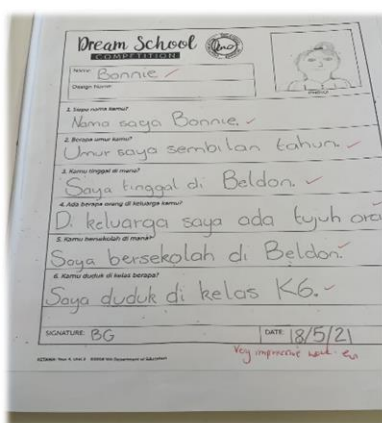 Dream School
COMPETITION
Uno
Name: Bonnie
Design Name:
1. Siapa nama kamu?
Nama saya Bonnie.
2. Berapa umur kamu?
Umur saya sembilan tahun.
3. Kamu tinggal di mana?
Saya tinggal di Beldon.
4. Ada berapa orang di keluarga kamu?
Di keluarga saya ada tujuh ora
5. Kamu bersekolah di mana?
Saya bersekolah di Beldon.
6. Kamu duduk di kelas berapa?
Saya duduk di kelas K6.
SIGNATURE: BG
DATE: 18/5/21
Very impressive work.
Department of Education